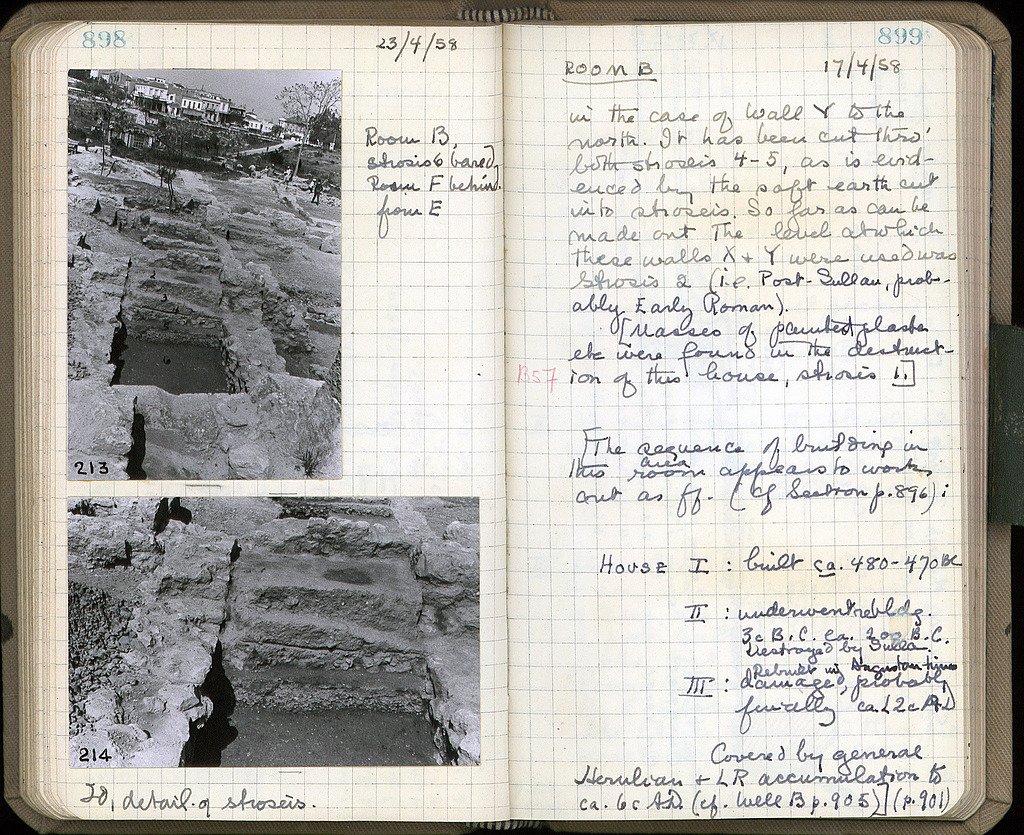 898
23/4/58
Room B,
strosis 6 bared.
Room F behind
from E
213
214
Id, detail of stroseis.
899
ROOM B
17/4/58
in the case of Wall Y to the
north. It has been cut thro'
both stroseis 4-5, as is evid-
enced by the soft earth cut
into stroseis. So far as can be
made out the level at which
these walls X + Y were used was
Strosis 2 (i.e. Post-Sullan, prob-
ably Early Roman).
[Masses of painted plaster
etc were found in the destruct-
B57
ion of this house, strosis 1.]
[The sequence of building in
area
this room appears to work
out as ff. (cf Section p. 896):
HOUSE I : built ca. 480-470 BC
II : underwent rebldg.
3c B.C. ca. 200 B.C.
Destroyed by Sulla.
Rebuilt in Augustan times
III : damaged, probably
finally ca. L2c AD
Covered by general
Herulian + LR accumulation to
ca. 6c AD. (cf. Well B p. 905)] (p. 901)